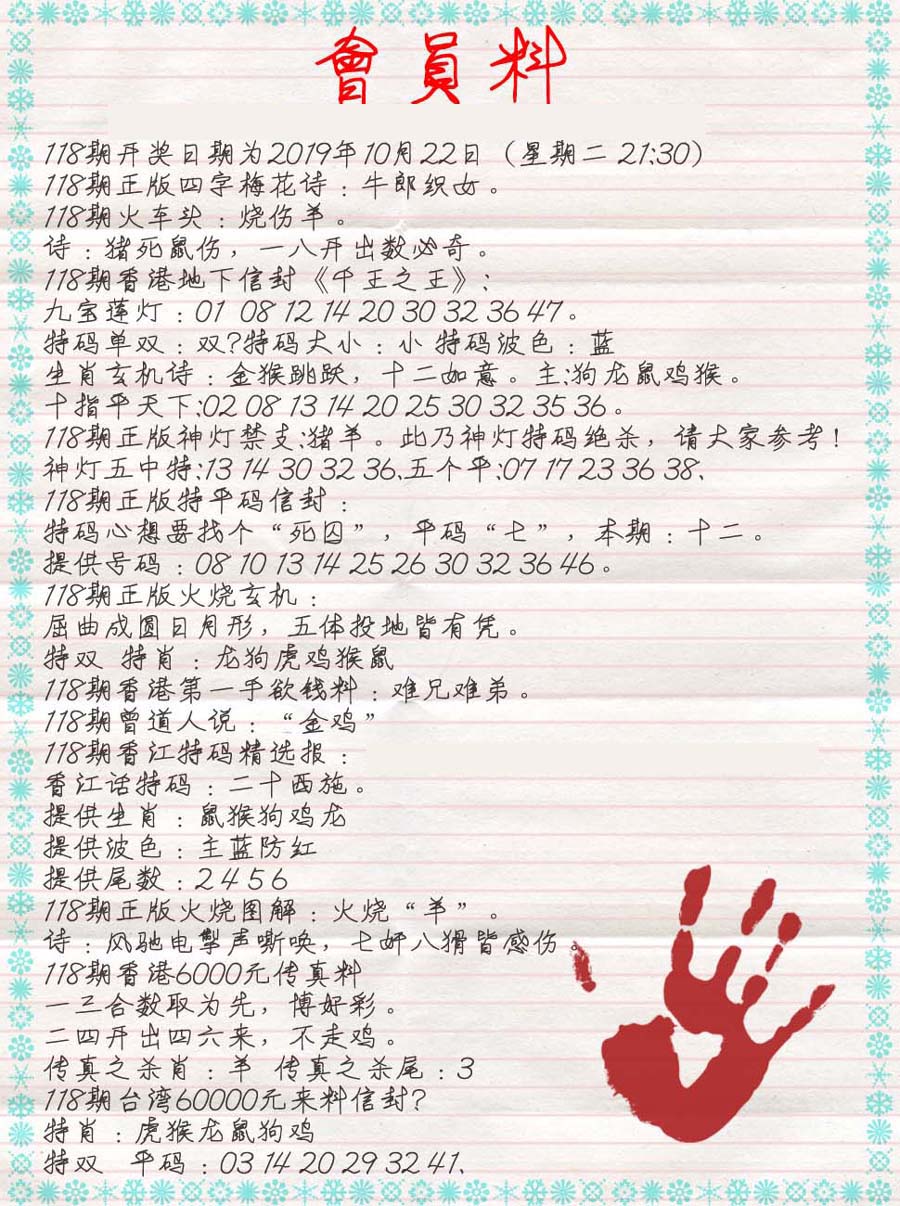 會員料
118期开奖日期为2019年10月22日（星期二 21:30）
118期正版四字梅花诗：牛郎织女。
118期火车头：烧伤羊。
诗：猪死鼠伤，一八开出数必奇。
118期香港地下信封《千王之王》：
九宝莲灯：01 08 12 14 20 30 32 36 47。
特码单双：双?特码大小：小 特码波色：蓝
生肖玄机诗：金猴跳跃，十二如意。主:狗龙鼠鸡猴。
十指平天下:02 08 13 14 20 25 30 32 35 36。
118期正版神灯禁支:猪羊。此乃神灯特码绝杀，请大家参考！
神灯五中特:13 14 30 32 36、五个平:07 17 23 36 38、
118期正版特平码信封：
特码心想要找个“死囚”，平码“七”，本期：十二。
提供号码：08 10 13 14 25 26 30 32 36 46。
118期正版火烧玄机：
屈曲成圆日月形，五体投地皆有凭。
特双 特肖：龙狗虎鸡猴鼠
118期香港第一手欲钱料：难兄难弟。
118期曾道人说：“金鸡”
118期香江特码精选报：
香江话特码：二十西施。
提供生肖：鼠猴狗鸡龙
提供波色：主蓝防红
提供尾数：2 4 5 6
118期正版火烧图解：火烧“羊”。
诗：风驰电掣声嘶唤，七奸八猾皆感伤。
118期香港6000元传真料
一三合数取为先，博好彩。
二四开出四六来，不走鸡。
传真之杀肖：羊 传真之杀尾：3
118期台湾60000元来料信封?
特肖：虎猴龙鼠狗鸡
特双 平码：03 14 20 29 32 41、